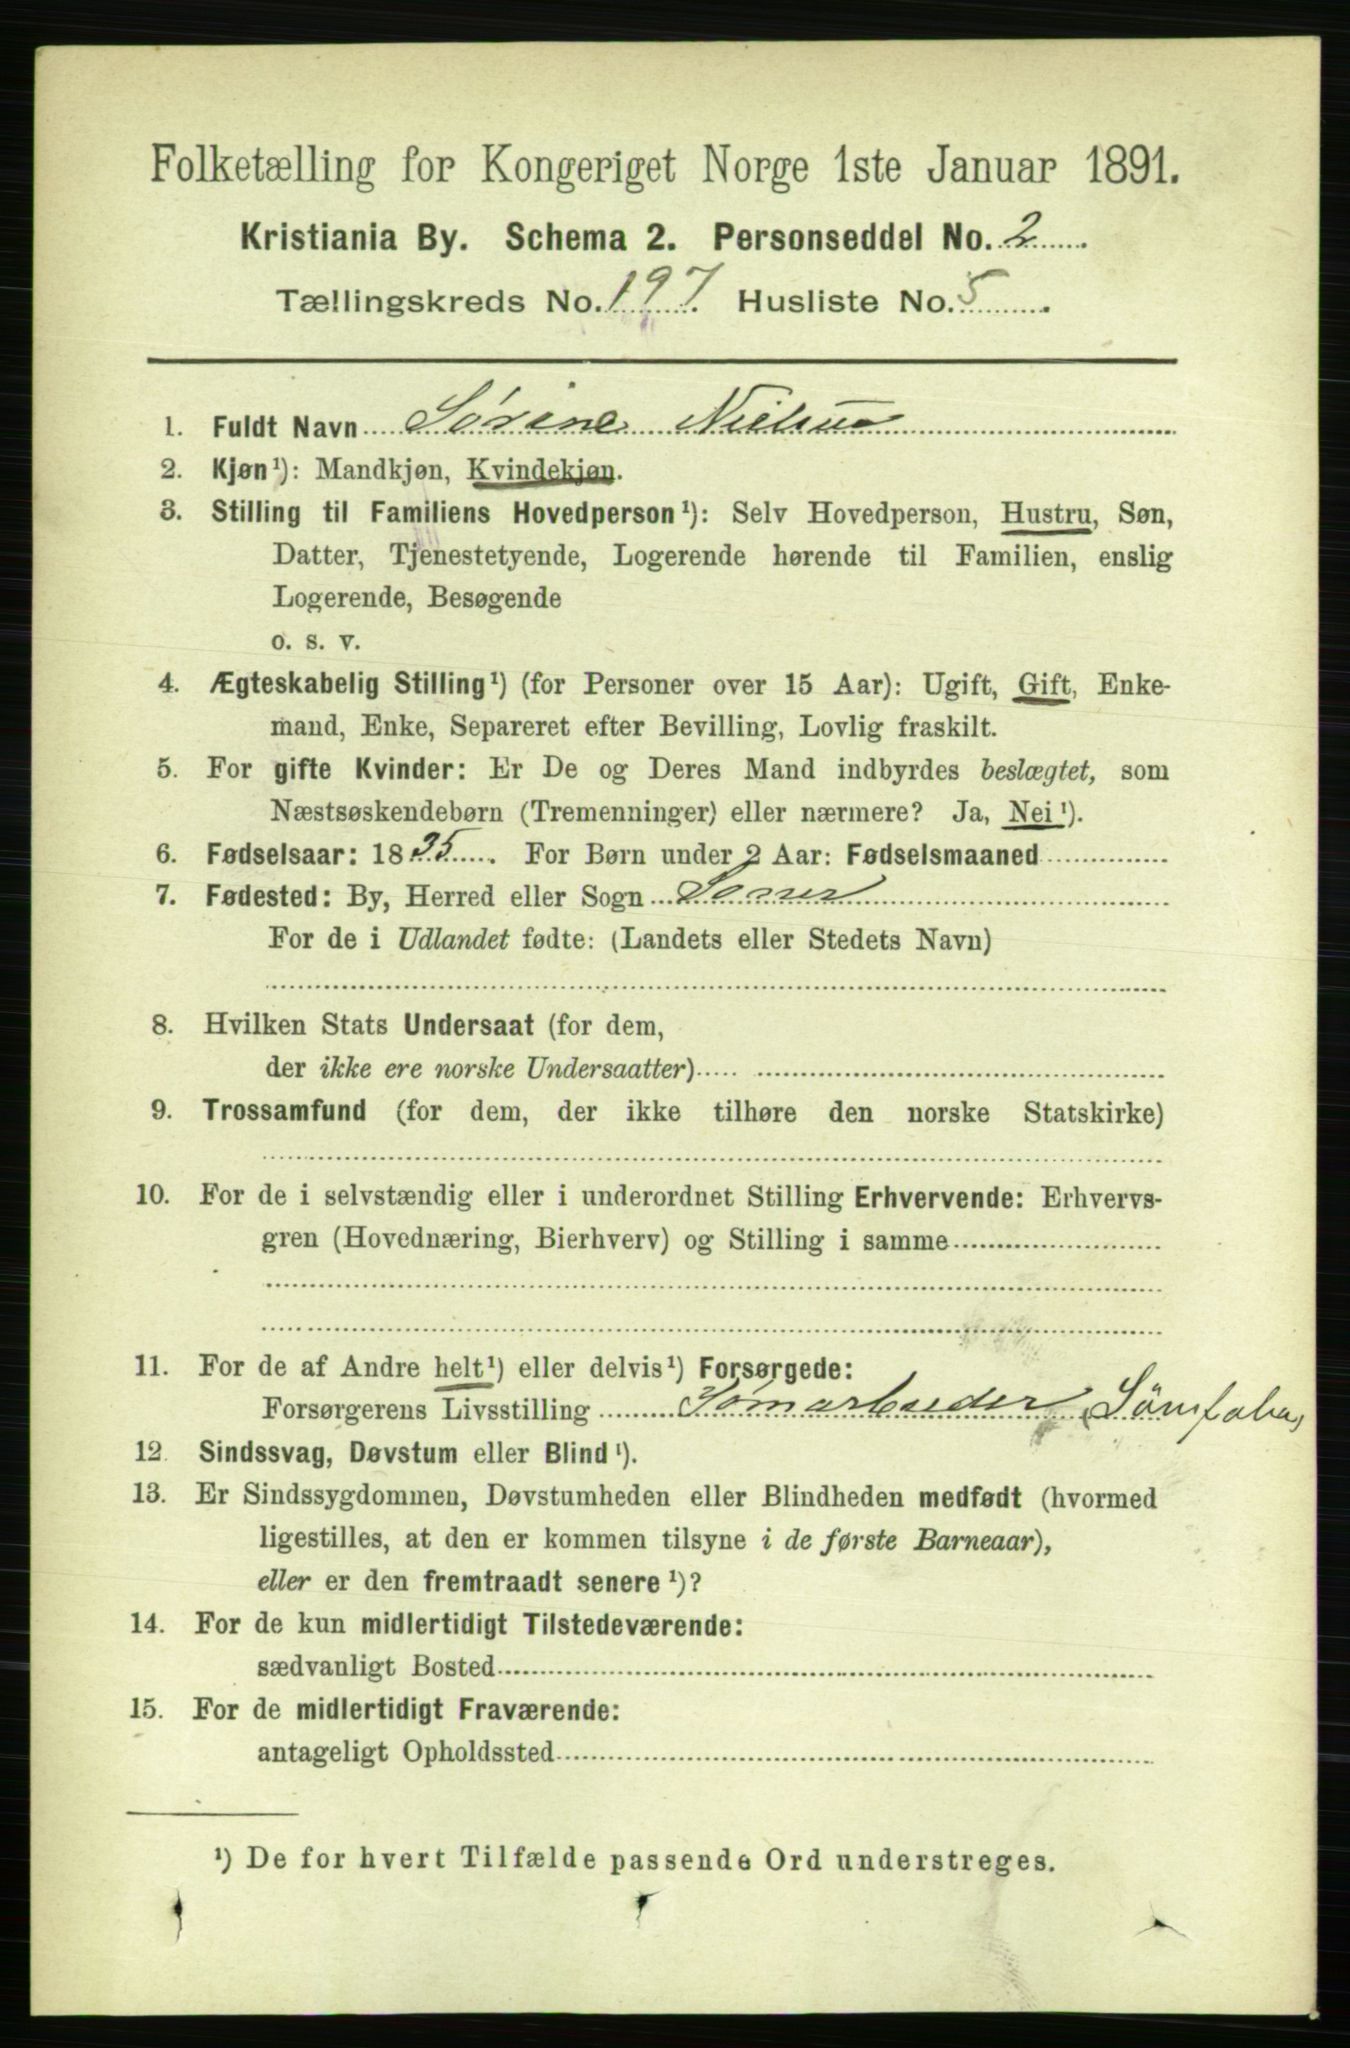 Folketælling for Kongeriget Norge 1ste Januar 1891.
Kristiania By. Schema 2. Personseddel No. 2
Tællingskreds No. 197. Husliste No. 5
1. Fuldt Navn Sørine Nielsen
2. Kjøn ¹): Mandkjøn, Kvindekjøn.
3. Stilling til Familiens Hovedperson ¹): Selv Hovedperson, Hustru, Søn,
Datter, Tjenestetyende, Logerende hørende til Familien, enslig
Logerende, Besøgende
o. s. v.
4. Ægteskabelig Stilling ¹) (for Personer over 15 Aar): Ugift, Gift, Enke-
mand, Enke, Separeret efter Bevilling, Lovlig fraskilt.
5. For gifte Kvinder: Er De og Deres Mand indbyrdes beslægtet, som
Næstsøskendebørn (Tremenninger) eller nærmere? Ja, Nei ¹).
6. Fødselsaar: 1835. For Børn under 2 Aar: Fødselsmaaned
7. Fødested: By, Herred eller Sogn
For de i Udlandet fødte: (Landets eller Stedets Navn)
8. Hvilken Stats Undersaat (for dem,
der ikke ere norske Undersaatter)
9. Trossamfund (for dem, der ikke tilhøre den norske Statskirke)
10. For de i selvstændig eller i underordnet Stilling Erhvervende: Erhvervs-
gren (Hovednæring, Bierhverv) og Stilling i samme
11. For de af Andre helt ¹) eller delvis ¹) Forsørgede:
Forsørgerens Livsstilling Sømarbeider, Sömfabr,
12. Sindssvag, Døvstum eller Blind ¹).
13. Er Sindssygdommen, Døvstumheden eller Blindheden medfødt (hvormed
ligestilles, at den er kommen tilsyne i de første Barneaar),
eller er den fremtraadt senere ¹)?
14. For de kun midlertidigt Tilstedeværende:
sædvanligt Bosted
15. For de midlertidigt Fraværende:
antageligt Opholdssted
¹) De for hvert Tilfælde passende Ord understreges.